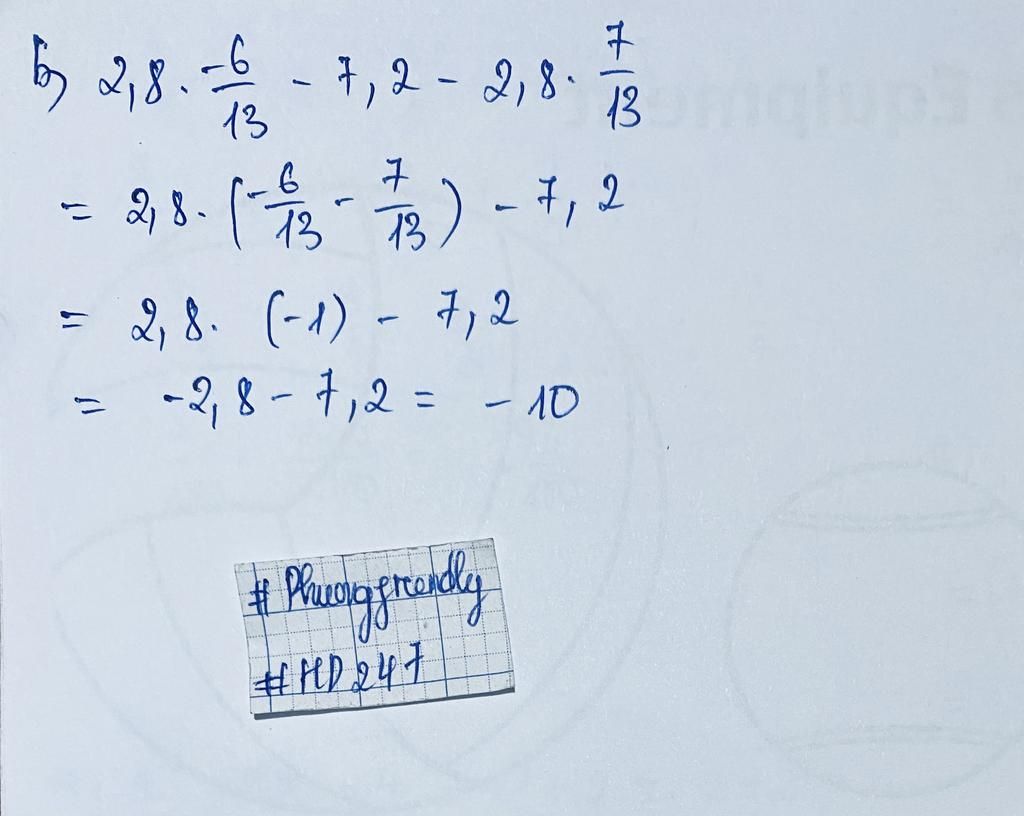 b) 2,8 . -6/13 - 7,2 - 2,8 . 7/13
= 2,8 . (-6/13 - 7/13) - 7,2
= 2,8 . (-1) - 7,2
= -2,8 - 7,2 = -10
Equipment
# Phuongfrendly
#HD247